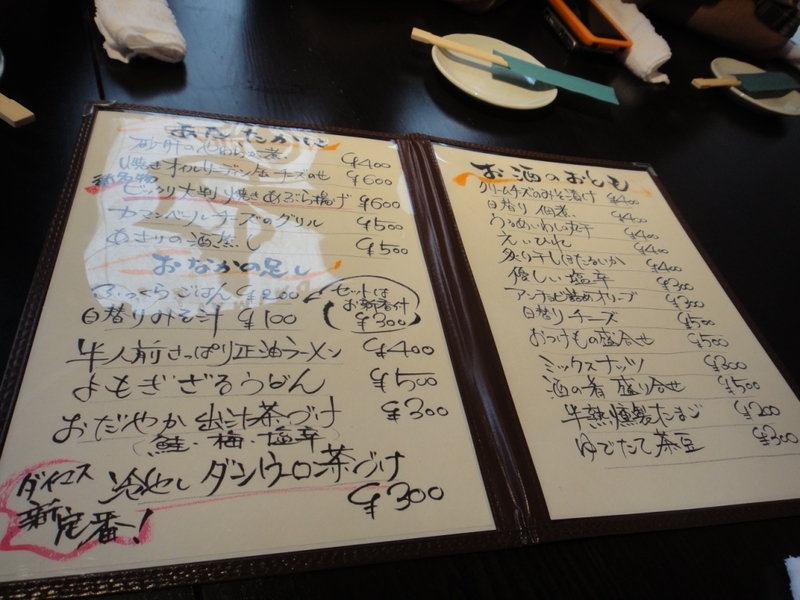 あたたかに
砂肝の 煮 ¥400
焼きオイルサーディン缶チーズのせ ¥600
新名物
ビックリ大判 焼きあぶら揚げ ¥600
カマンベールチーズのグリル ¥500
あさりの酒蒸し ¥500
おなかの足し
ふっくらごはん ¥200
セットは
お新香付
¥300
日替りみそ汁 ¥100
半人前さっぱり正油ラーメン ¥400
よもぎざるうどん ¥500
おだやか 出汁茶づけ ¥300
(鮭・梅・塩辛)
ダイコス
新定番!
冷やし ダシウーロン茶づけ
¥300
お酒のおとも
クリームチーズのみそ漬け ¥400
日替り 佃煮 ¥400
うるめいわし丸干 ¥400
えいひれ ¥400
炙り干しほたるいか ¥400
優しい塩辛 ¥300
アンチョビ詰めオリーブ ¥300
日替りチーズ ¥500
おつけもの盛合せ ¥500
ミックスナッツ ¥300
酒の肴 盛り合せ ¥500
半熟燻製たまご ¥200
ゆでたて茶豆 ¥300